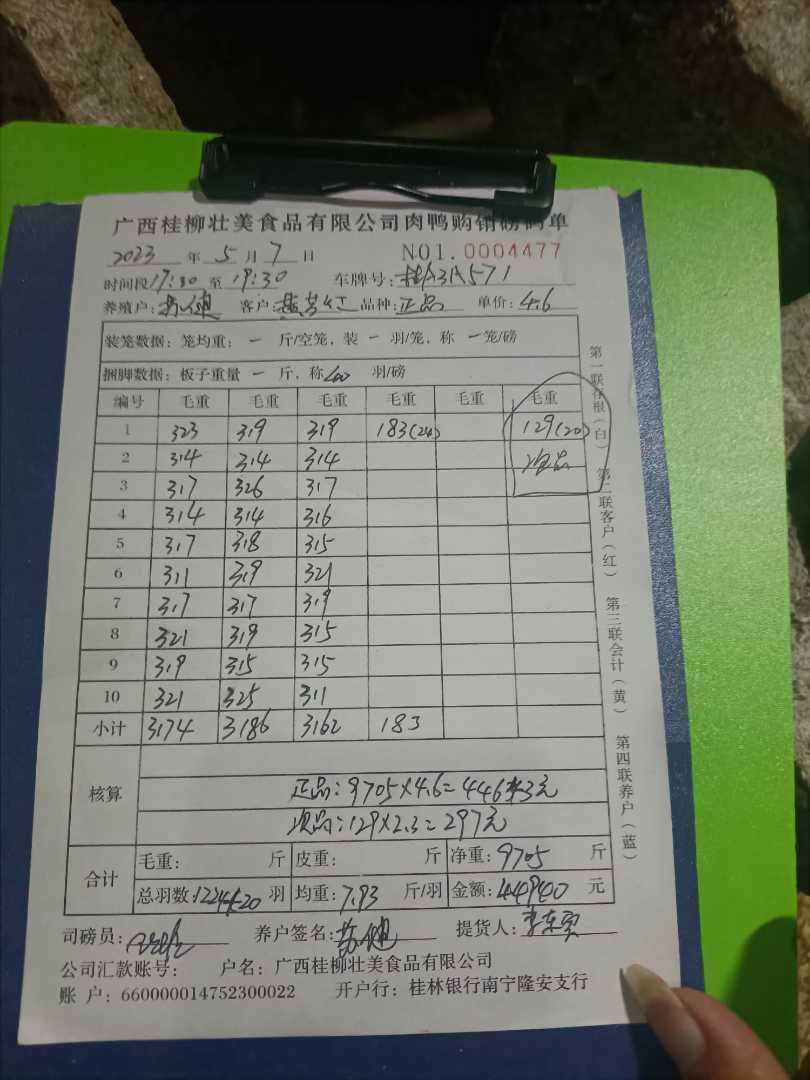 广西桂柳壮美食品有限公司肉鸭购销磅码单
2023 年 5 月 7 日 NO1. 0004477
时间段 17:30 至 19:30 车牌号: 571
养殖户: 客户: 品种: 正品 单价: 4.6
装笼数据: 笼均重: 一 斤/空笼, 装 一 羽/笼, 称 一 笼/磅
捆脚数据: 板子重量 一 斤, 称 40 羽/磅
编号 毛重 毛重 毛重 毛重 毛重 毛重
1 323 319 319 183(24) 129(20)
2 314 314 314 次品
3 317 326 317
4 314 314 316
5 317 318 315
6 311 319 321
7 317 317 319
8 321 319 315
9 319 315 315
10 321 325 311
小计 3174 3186 3162 183
核算
正品: 9705×4.6=44643元
次品: 129×2.3=297元
合计
毛重: 斤 皮重: 斤 净重: 9705 斤
总羽数: 1224+20 羽 均重: 7.93 斤/羽 金额: 44940 元
司磅员: 养户签名: 提货人:
公司汇款账号: 户名: 广西桂柳壮美食品有限公司
账 户: 660000014752300022 开户行: 桂林银行南宁隆安支行
第一联存根(白) 第二联客户(红) 第三联会计(黄) 第四联养户(蓝)